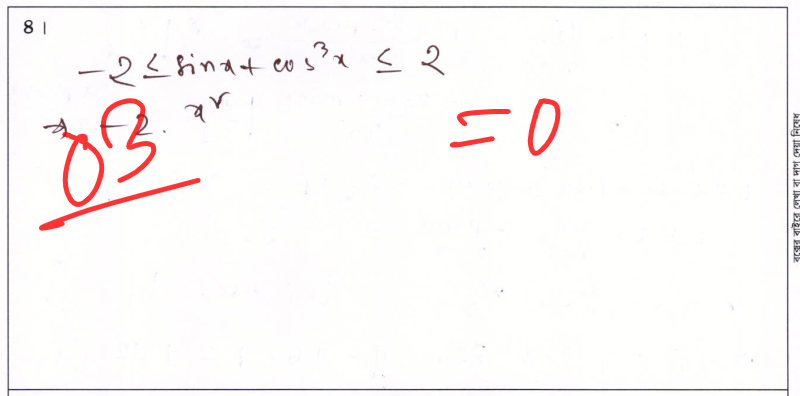 8।
-2 ≤ sinx + cos³x ≤ 2
⇒ -2. x²
03
= 0
বক্সের বাইরে লেখা বা দাগ দেয়া নিষেধ